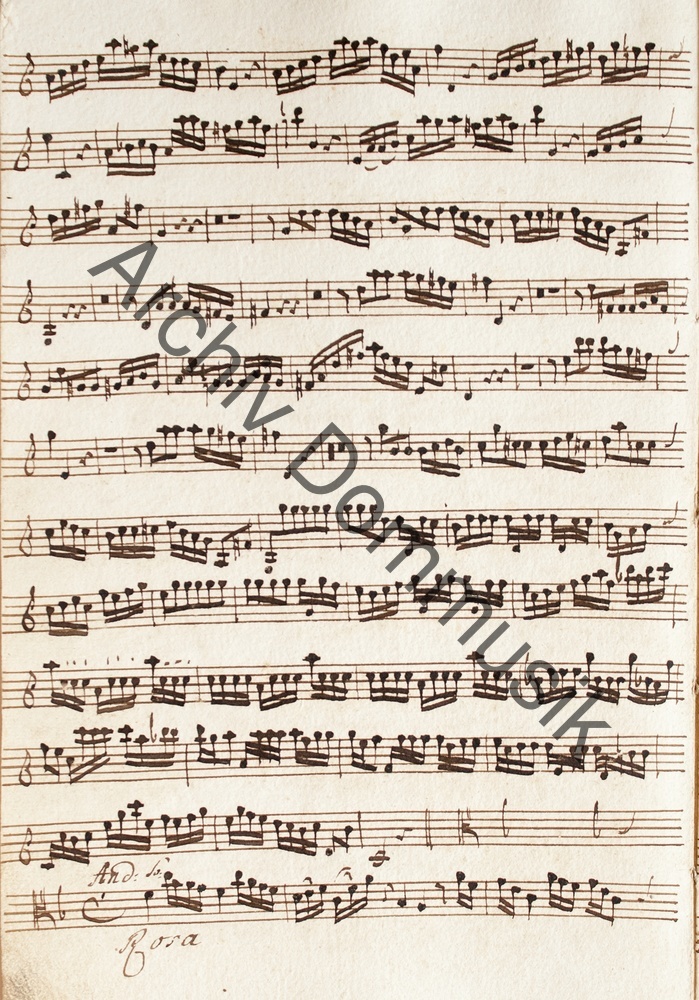 Archiv Dommusik
And: te
Rosa